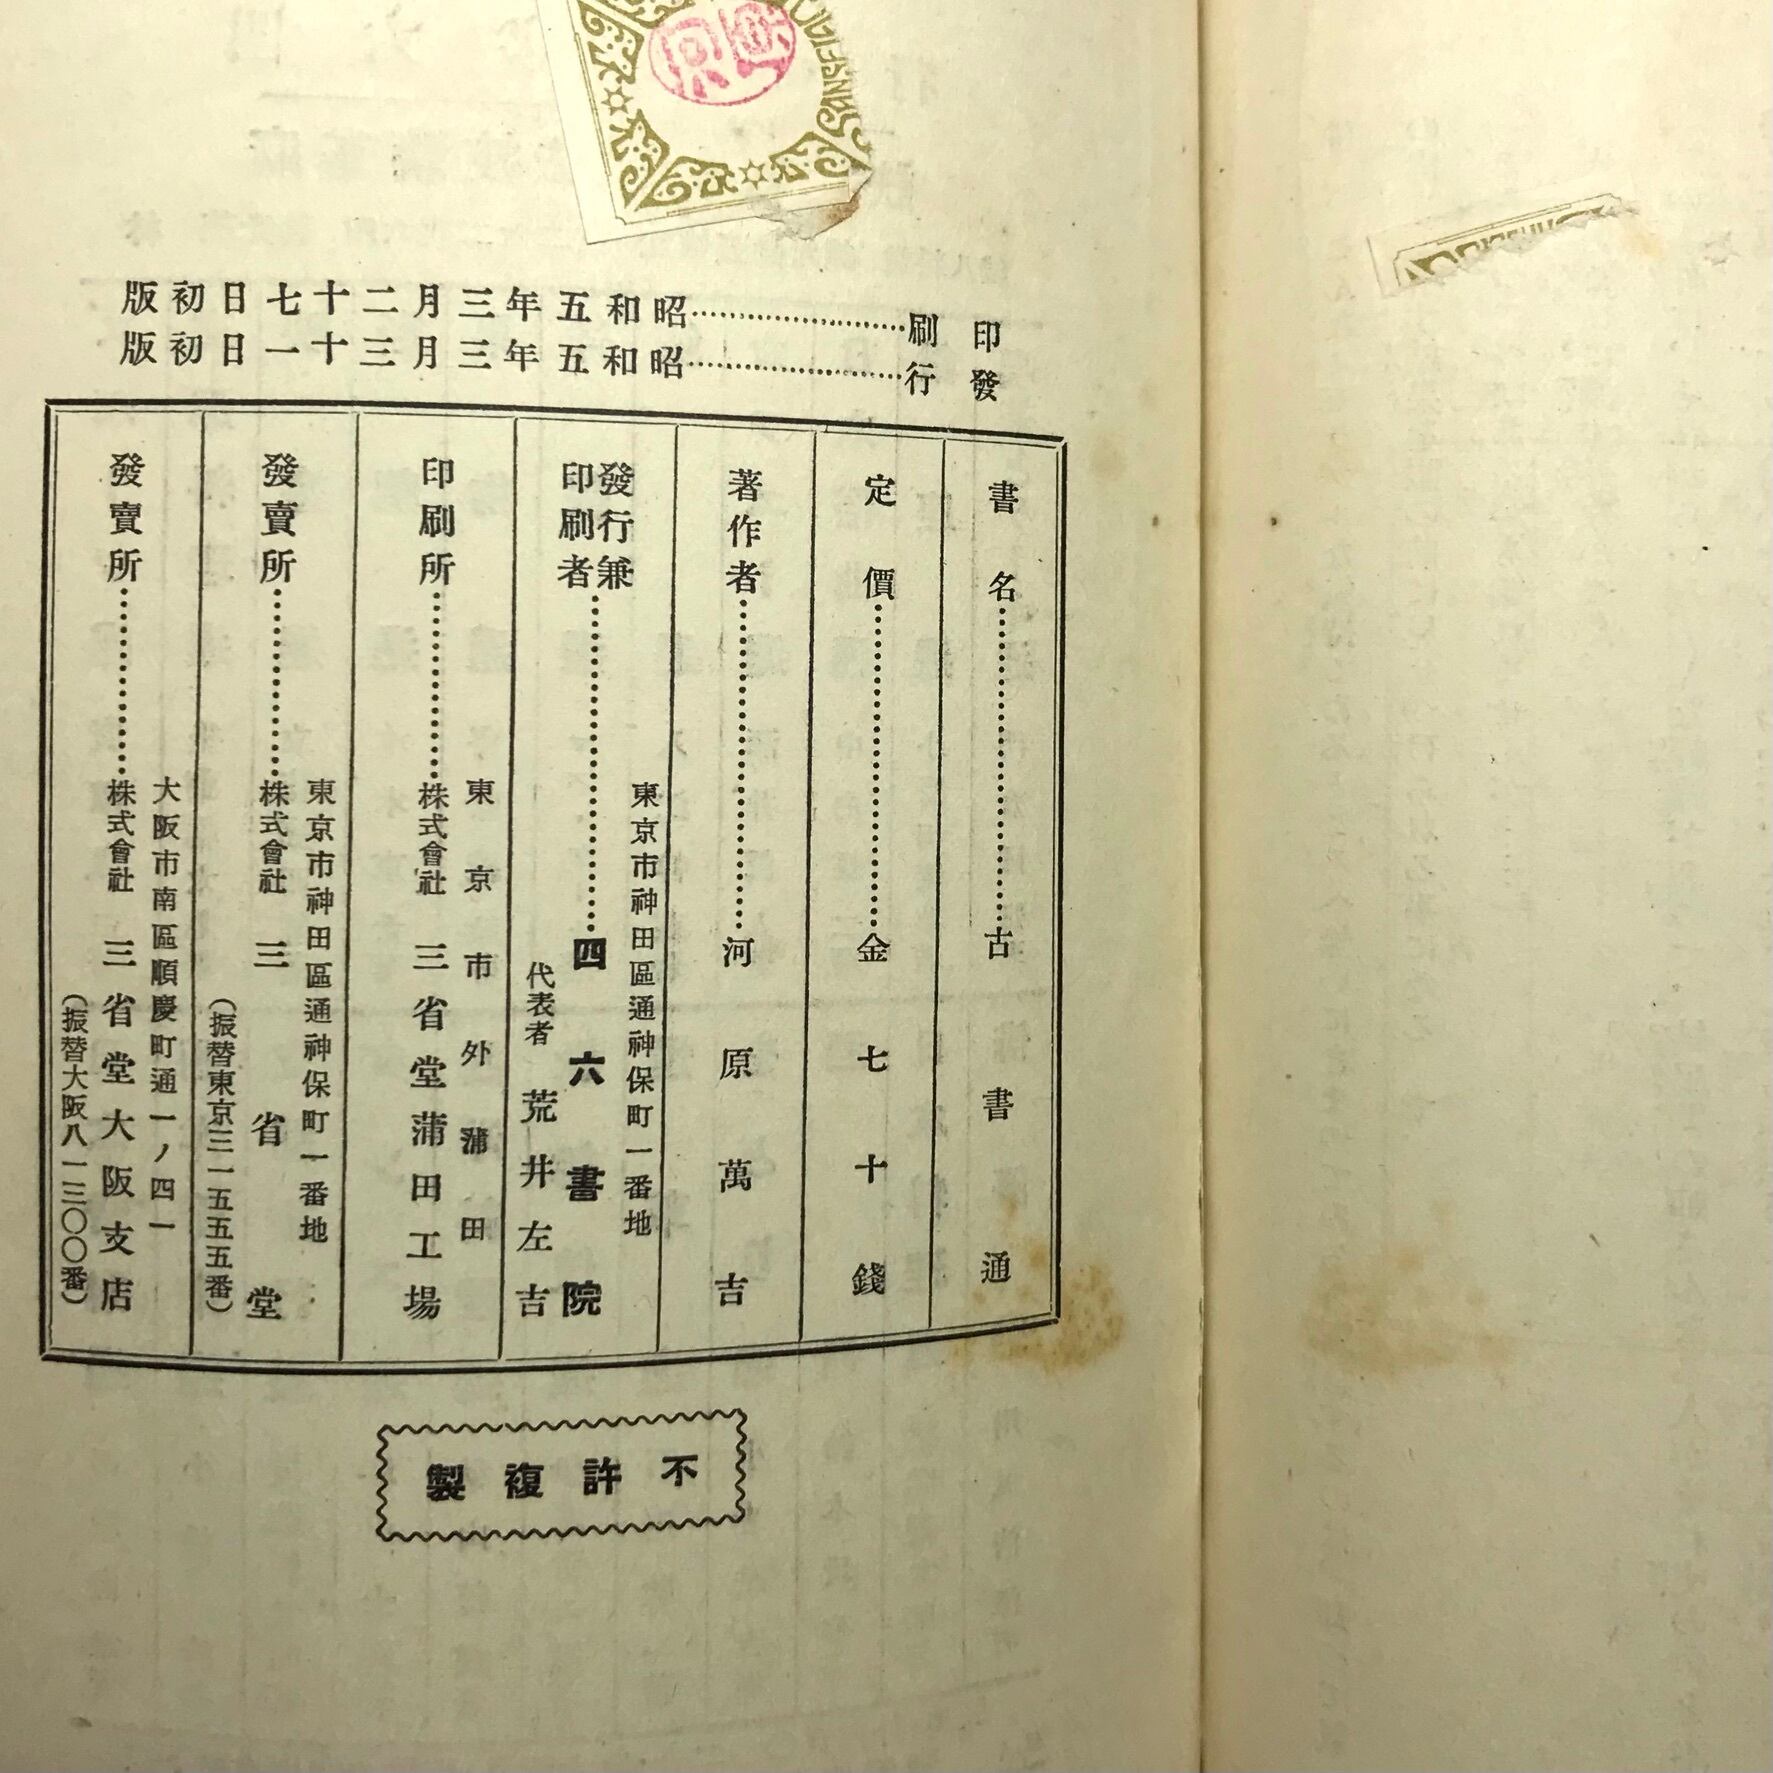 SANSEIDO
印刷……昭和五年三月二十七日初版
發行……昭和五年三月三十一日初版
書名……古書通
定價……金七十錢
著作者……河原萬吉
發行兼印刷者……
東京市神田區通神保町一番地
四六書院
代表者 荒井左吉
印刷所……
東京市外蒲田
株式會社 三省堂蒲田工場
發賣所……
東京市神田區通神保町一番地
株式會社 三省堂
(振替東京三一五五五番)
發賣所……
大阪市南區順慶町通一ノ四一
株式會社 三省堂大阪支店
(振替大阪八一三〇〇番)
不許複製